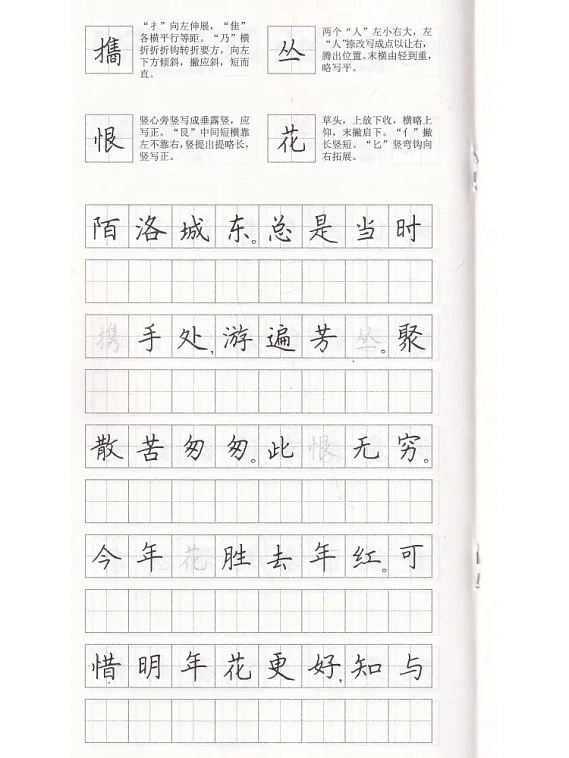 携
“扌”向左伸展，“隹”
各横平行等距。“乃”横
折折折钩转折要方，向左
下方倾斜，撇应斜，短而
直。
丛
两个“人”左小右大，左
“人”捺改写成点以让右，
腾出位置。末横由轻到重，
略写平。
恨
竖心旁竖写成垂露竖，应
写正。“艮”中间短横靠
左不靠右，竖提出提略长，
竖写正。
花
草头，上放下收，横略上
仰，末撇启下。“亻”撇
长竖短。“匕”竖弯钩向
右拓展。
陌洛城东。总是当时
携手处，游遍芳丛。聚
散苦匆匆。此恨无穷。
今年花胜去年红。可
惜明年花更好，知与